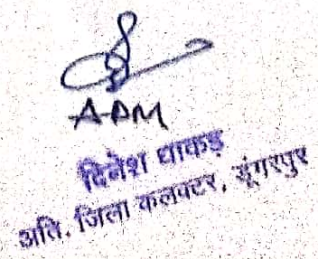 ADM
दिनेश धाकड़
अति. जिला कलक्टर, डूंगरपुर